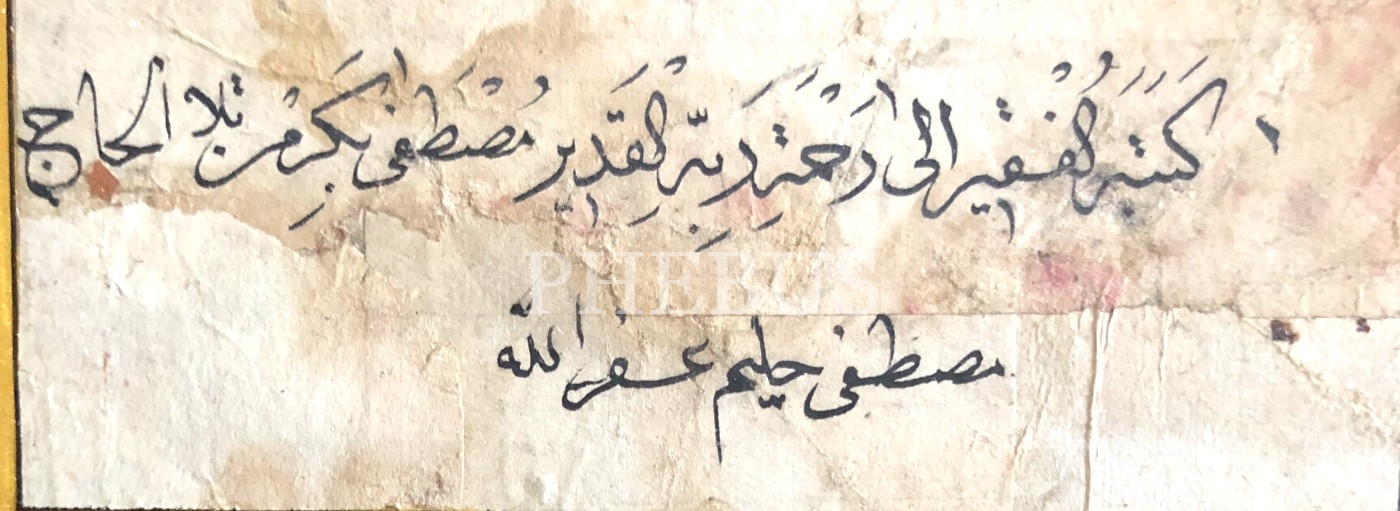 كَتَبَهُ الْفَقِيرُ الى رَحْمَةِ رَبِّهِ الْقَدِيرِ مُصْطَفَى بَكِر مْن تلا الحاج
PHEBUS
مصطفى حليم غفر الله